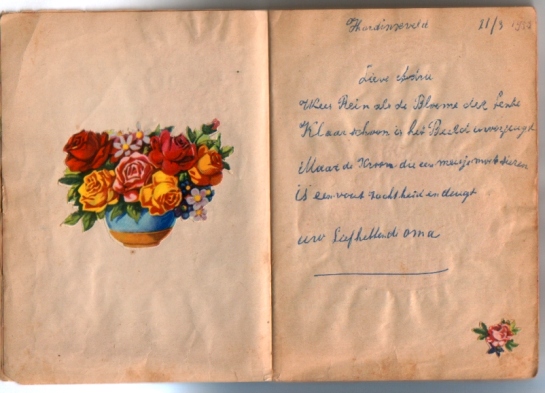 Hardinxveld 21/3
Lieve
Wees Rein als de Bloeme der Lente
Klaar schoon is het Beeld uwer jeugd
Maar de Kroon die een meisje moet sieren
is eenvout zachtheid en deugt
uw Liefhebbende oma